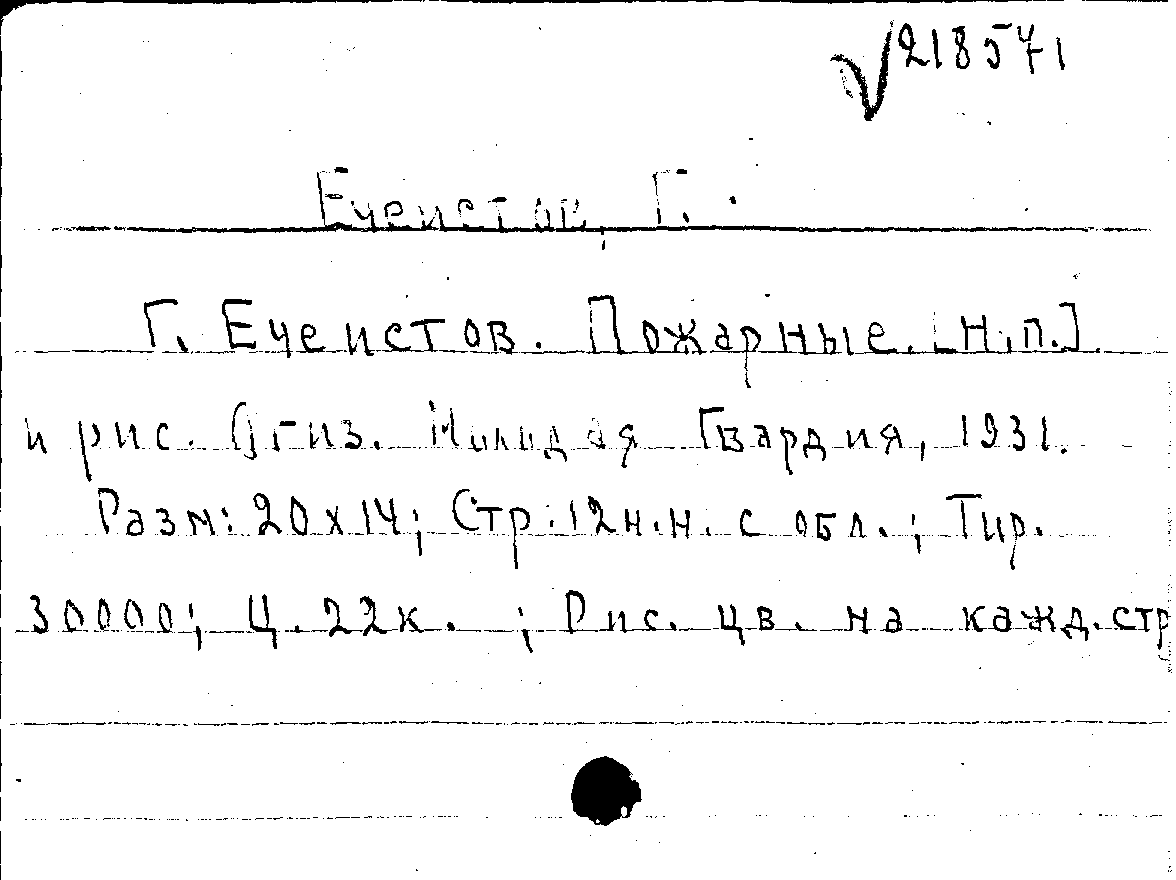 √218571
Ечеистов, Г.
Г. Ечеистов. Пожарные. [Н.п.]
и рис. Огиз. Молодая Гвардия, 1931.
Разм: 20х14; Стр: 12н.н. с обл.; Тир.
30000; Ц. 22к. ; Рис. цв. на кажд. стр